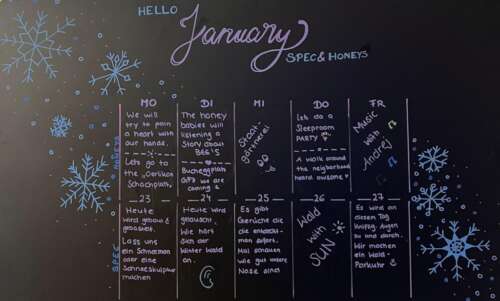 HELLO
January
SPEC & HONEYS
MO
DI
MI
DO
FR
HONEYS
We will
try to pain
a heart with
our hands.
Let's go to
the „Oerlikon
Schachplatz„
The honey
babies will
listening a
Story about
BEE'S
Bucheggplatz
we are
coming
Stadt-
gärtnerei
Let's do a
Sleeproom
PARTY
A Walk around
the neighborhood
heard awsome
Music
with
Andrej
23
24
25
26
27
SPEC
Heute
wird gebaut &
gebastelt.
Lass uns
ein Schneemann
oder eine
Schneeskulptur
machen
Heute wird
gelauscht.
Wie hört
sich der
Winter Wald
an.
Es gibt
Gerüchte die
die
Mal schauen
wie gut unsere
Nase
Wald
with
SUN
Es wird an
diesem Tag
kreuz
und durch.
Wir machen
ein Wald-
Parkuhr